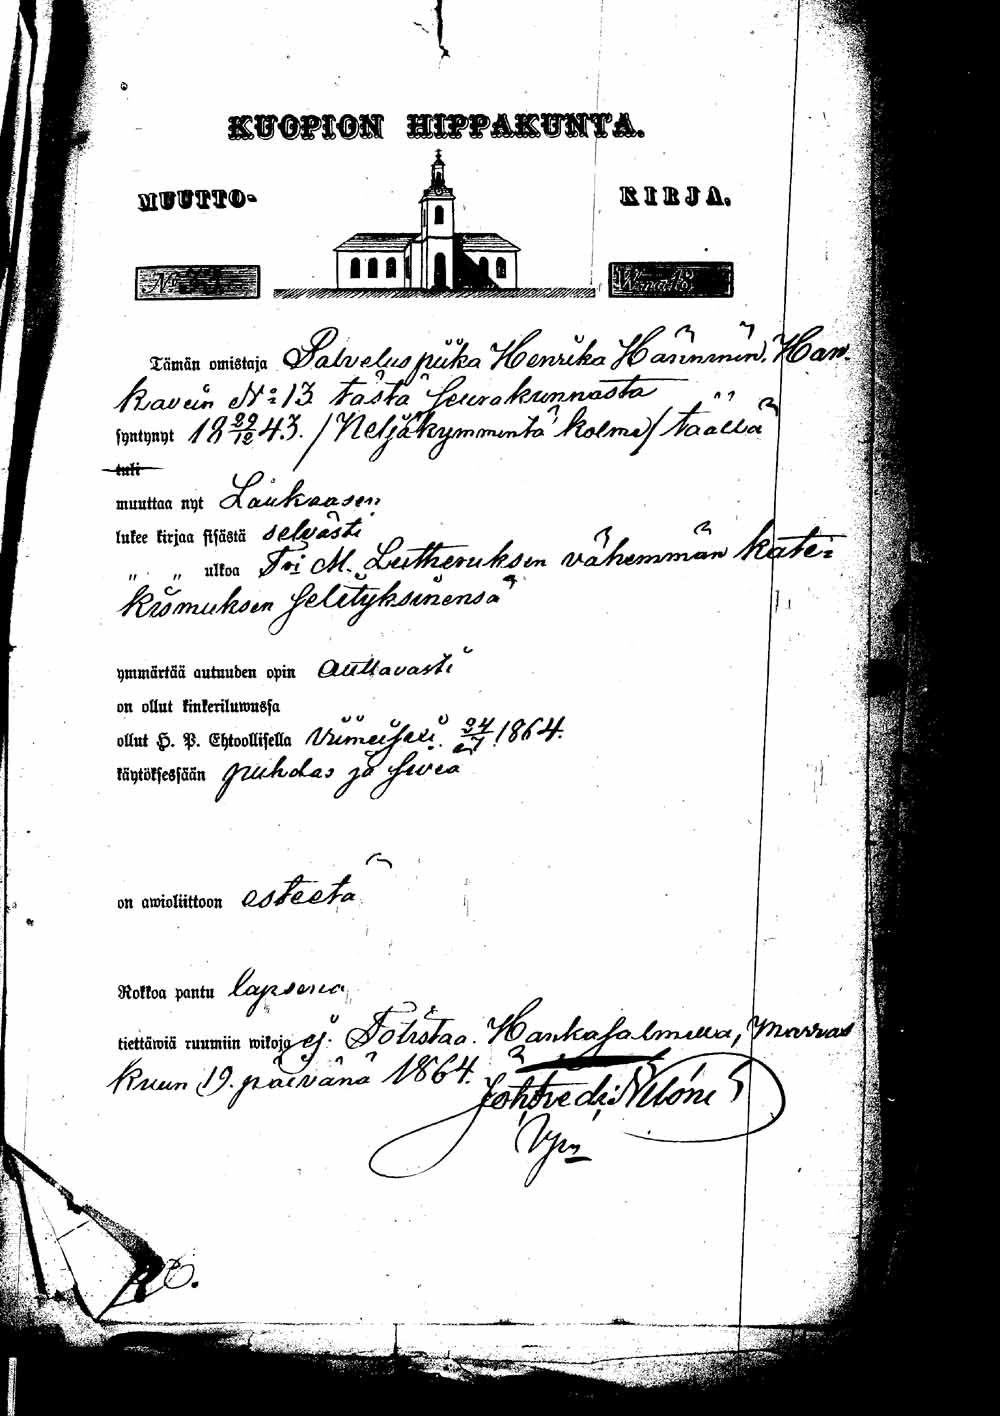 KUOPION HIPPAKUNTA.
MUUTTO- KIRJA.
No Wuosta
Tämän omistaja Palvelus piika Henrika Hänninen, Han-
kavein No 13 tästä Seurakunnasta
syntynyt 18 29/12 43. /Neljäkymmentä kolme/ täällä
tuli
muuttaa nyt Laukaasen
lukee kirjaa sisästä selvästi
" " ulkoa Tri M. Lutheruksen vähemmän kate-
kismuksen Selityksinensä
ymmärtää autuuden opin auttavasti
on ollut kinkeriluwussa
ollut H. P. Ehtoollisella Viimeisexi 1864.
käytöksessään puhdas ja Siviä
on awioliittoon esteetä
Rokkoa pantu lapsena
tiettäwiä ruumiin wikoja ej. Todistaa. Hankasalmella, Marras
kuun 19. päivänä 1864.